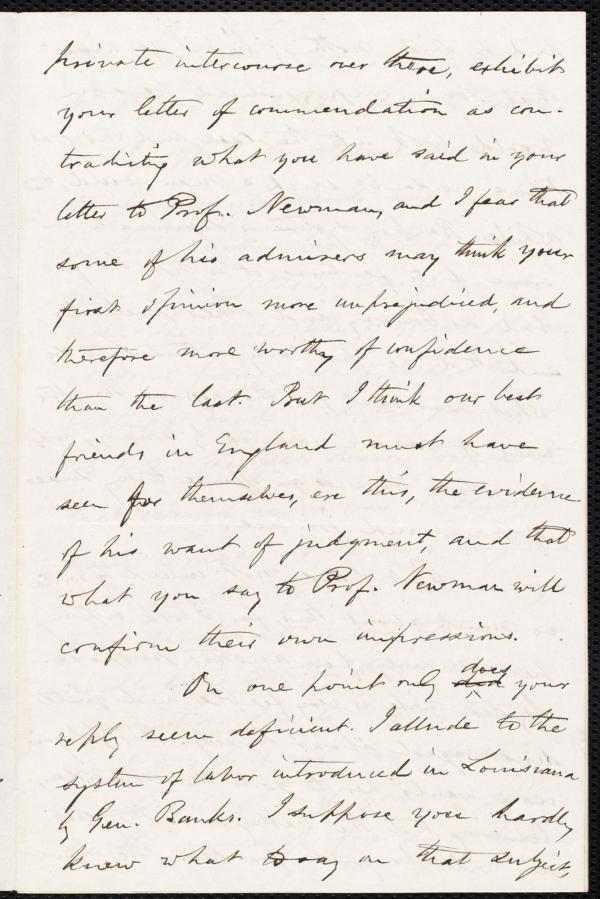 private intercourse over there, exhibit
your letter of commendation as con-
tradicting what you have said in your
letter to Prof. Newman, and I fear that
some of his admirers may think your
first opinion more unprejudiced, and
therefore more worthy of confidence
than the last. But I think our best
friends in England must have
seen for themselves, ere this, the evidence
of his want of judgment, and that
what you say to Prof. Newman will
confirm their own impressions.
On one point only does your
reply seem deficient. I allude to the
system of labor introduced in Louisiana
by Gen. Banks. I suppose you hardly
knew what to say on that subject,